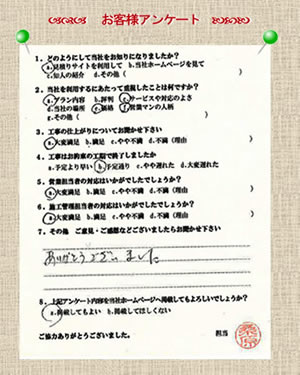 お客様アンケート
1．どのようにして当社をお知りになりましたか？
a.見積りサイトを利用して b.当社ホームページを見て
c.知人の紹介 d.その他（ ）
2．当社を利用するにあたって重視したことは何ですか？
a.プラン内容 b.評判 c.サービスや対応のよさ
d.当社の場所 e.価格 f.営業マンの人柄
g.その他（ ）
3．工事の仕上がりについてお聞かせ下さい
a.大変満足 b.満足 c.やや不満 d.不満（理由 ）
4．工事はお約束の工期で終了しましたか
a.予定より早い b.予定通り c.やや遅れた d.大変遅れた
5．営業担当者の対応はいかがでしたでしょうか？
a.大変満足 b.満足 c.やや不満 d.不満（理由 ）
6．施工管理担当者の対応はいかがでしたでしょうか？
a.大変満足 b.満足 c.やや不満 d.不満（理由 ）
7．その他 ご意見・ご感想などございましたらお聞かせ下さい
ありがとうございました
8．上記アンケート内容を当社ホームページへ掲載してもよろしいでしょうか？
a.掲載してもよい b.掲載してほしくない
ご協力ありがとうございました。
担当